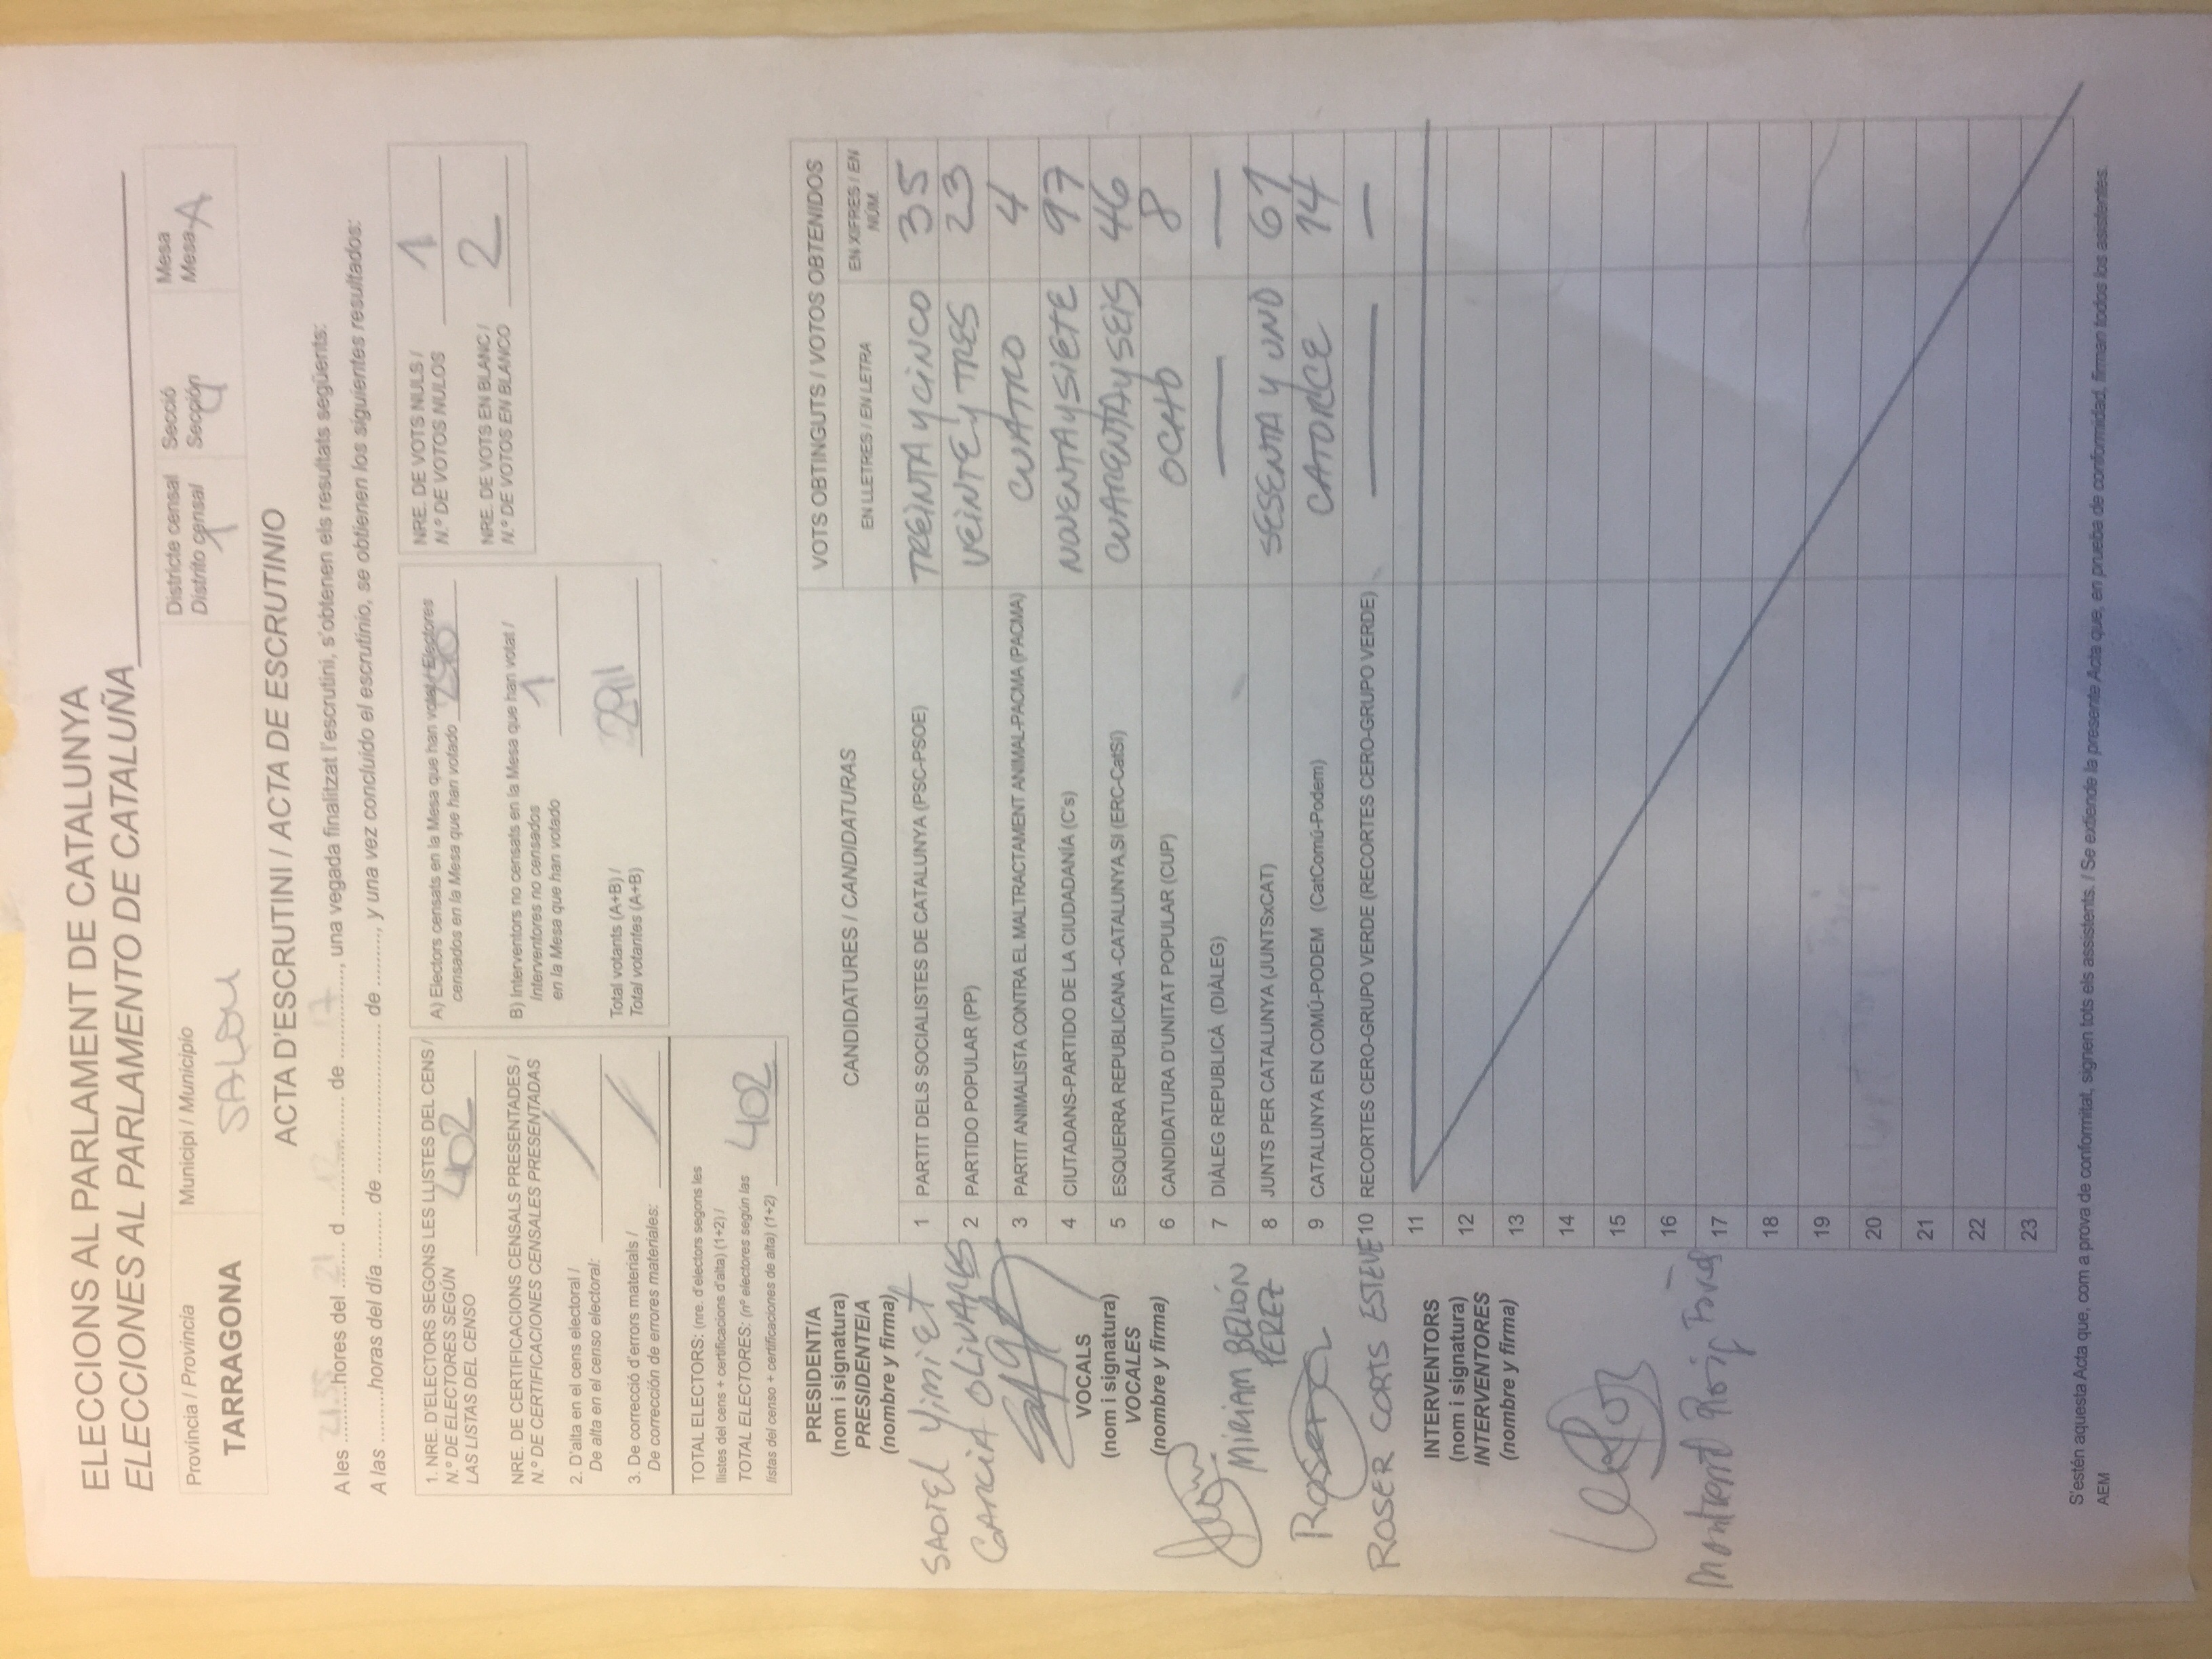 ELECCIONS AL PARLAMENT DE CATALUNYA
ELECCIONES AL PARLAMENTO DE CATALUÑA
Província / Provincia
TARRAGONA
Municipi / Municipio
SALOU
Districte censal
Distrito censal
1
Secció
Sección
4
Mesa
Mesa A
ACTA D'ESCRUTINI / ACTA DE ESCRUTINIO
A les 21:55 hores del 21 d 12 de 17, una vegada finalitzat l'escrutini, s'obtenen els resultats següents:
A las .........horas del día ........ de ........................ de ........., y una vez concluido el escrutinio, se obtienen los siguientes resultados:
1. NRE. D'ELECTORS SEGONS LES LLISTES DEL CENS /
N.º DE ELECTORES SEGÚN
LAS LISTAS DEL CENSO 402
NRE. DE CERTIFICACIONS CENSALS PRESENTADES /
N.º DE CERTIFICACIONES CENSALES PRESENTADAS
2. D'alta en el cens electoral /
De alta en el censo electoral: /
3. De correcció d'errors materials /
De corrección de errores materiales: /
TOTAL ELECTORS: (nre. d'electors segons les
llistes del cens + certificacions d'alta) (1+2) /
TOTAL ELECTORES: (nº electores según las
listas del censo + certificaciones de alta) (1+2) 402
A) Electors censats en la Mesa que han votat / Electores
censados en la Mesa que han votado 290
B) Interventors no censats en la Mesa que han votat /
Interventores no censados
en la Mesa que han votado 1
Total votants (A+B) /
Total votantes (A+B) 291
NRE. DE VOTS NULS /
N.º DE VOTOS NULOS 1
NRE. DE VOTS EN BLANC /
N.º DE VOTOS EN BLANCO 2
PRESIDENT/A
(nom i signatura)
PRESIDENTE/A
(nombre y firma)
SAOTEL YIMIET
GARCIA OLIVARES
VOCALS
(nom i signatura)
VOCALES
(nombre y firma)
MIRIAM BELLÓN
PEREZ
Roser
ROSER CORTS ESTEVE
INTERVENTORS
(nom i signatura)
INTERVENTORES
(nombre y firma)
Roig
CANDIDATURES / CANDIDATURAS
VOTS OBTINGUTS / VOTOS OBTENIDOS
EN LLETRES / EN LETRA
EN XIFRES / EN
NÚM.
1 PARTIT DELS SOCIALISTES DE CATALUNYA (PSC-PSOE) TREINTA Y CINCO 35
2 PARTIDO POPULAR (PP) VEINTE Y TRES 23
3 PARTIT ANIMALISTA CONTRA EL MALTRACTAMENT ANIMAL-PACMA (PACMA) CUATRO 4
4 CIUTADANS-PARTIDO DE LA CIUDADANÍA (C's) NOVENTA Y SIETE 97
5 ESQUERRA REPUBLICANA -CATALUNYA SI (ERC-CatSí) CUARENTA Y SEIS 46
6 CANDIDATURA D'UNITAT POPULAR (CUP) OCHO 8
7 DIÀLEG REPUBLICÀ (DIÀLEG) — —
8 JUNTS PER CATALUNYA (JUNTSxCAT) SESENTA Y UNO 61
9 CATALUNYA EN COMÚ-PODEM (CatComú-Podem) CATORCE 14
10 RECORTES CERO-GRUPO VERDE (RECORTES CERO-GRUPO VERDE) — —
11
12
13
14
15
16
17
18
19
20
21
22
23
S'estén aquesta Acta que, com a prova de conformitat, signen tots els assistents. / Se extiende la presente Acta que, en prueba de conformidad, firman todos los asistentes.
AEM